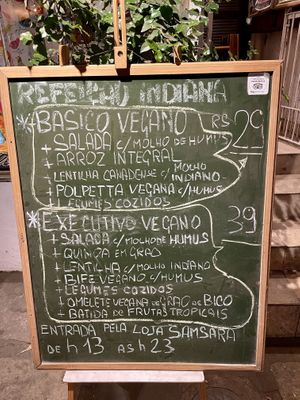 REFEIÇÃO INDIANA
*BASICO VEGANO R$ 29
+ SALADA C/MOLHO DE HUMUS
+ ARROZ INTEGRAL
+ LENTILHA CANADENSE C/MOLHO INDIANO
+ POLPETTA VEGANA C/HUMUS
+ LEGUMES COZIDOS
*EXECUTIVO VEGANO 39
+ SALADA C/MOLHO DE HUMUS
+ QUINOA EM GRÃO
+ LENTILHA C/MOLHO INDIANO
+ BIFE VEGANO C/HUMUS
+ LEGUMES COZIDOS
+ OMELETE VEGANA DE GRÃO DE BICO
+ BATIDA DE FRUTAS TROPICAIS
ENTRADA PELA LOJA SAMSARA
DE h 13 AS h 23